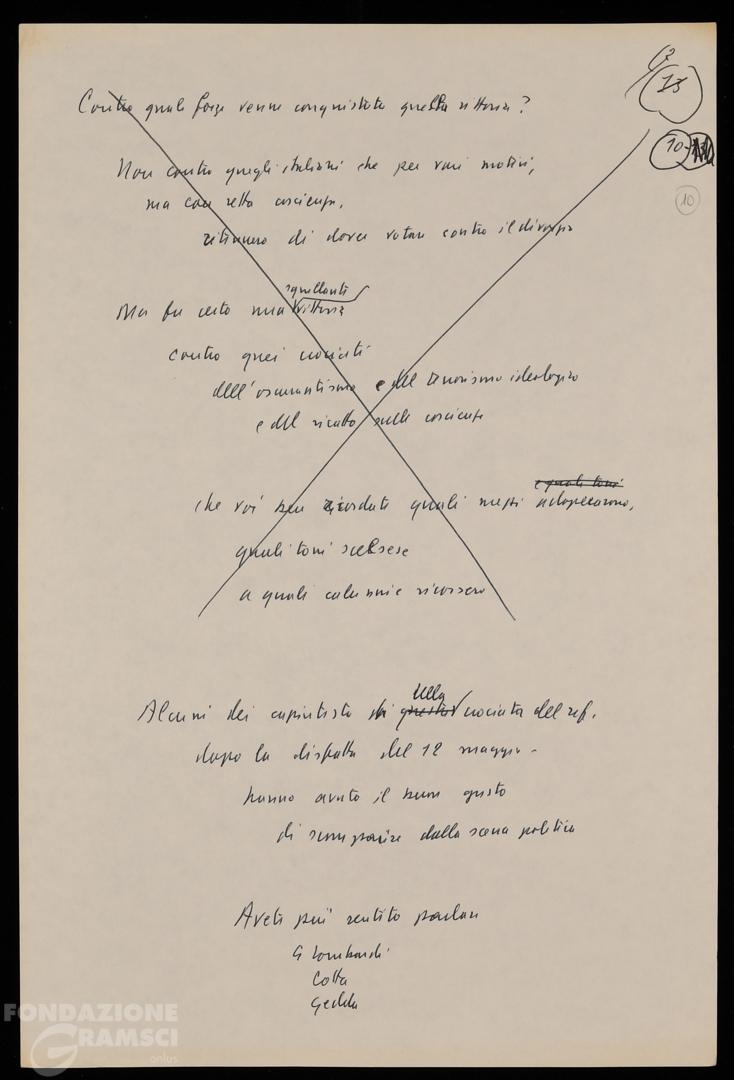 13
10
10
Contro quali forze venne conquistata quella vittoria?
Non contro quegli italiani che per vari motivi,
ma con retta coscienza,
ritennero di dover votare contro il divorzio
squillante
Ma fu certo una vittoria
contro quei crociati
dell'oscurantismo e del terrorismo ideologico
e del ricatto sulle coscienze
e quali toni
che voi ben ricordate quali mezzi adoperarono,
quali toni scelsero
a quali calunnie ricorsero
della
Alcuni dei capintesta di questa crociata del ref.
dopo la disfatta del 12 maggio -
hanno avuto il buon gusto
di scomparire dalla scena politica
Avete più sentito parlare
G Lombardi
Cotta
Gedda
FONDAZIONE
GRAMSCI
onlus